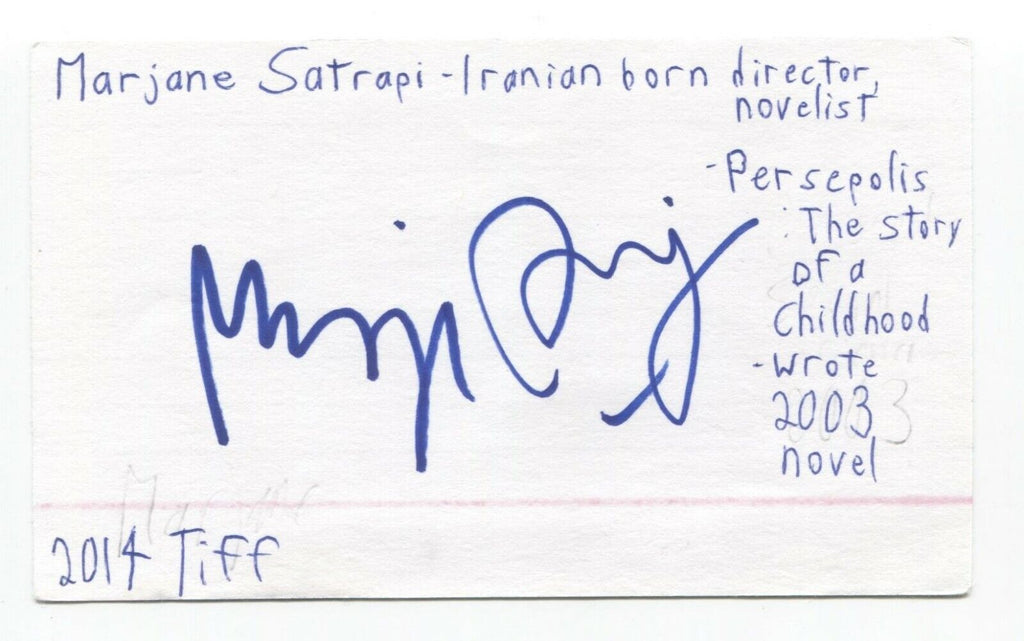 Marjane Satrapi - Iranian born director,
novelist
- Persepolis
: The story
of a
Childhood
- wrote
2003
novel
2014 Tiff